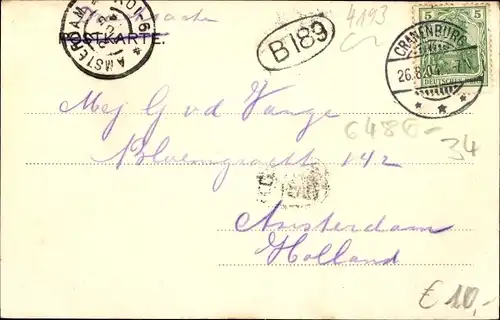 4193
POSTKARTE.
AMSTERDAM
B189
CRANENBURG
26.8.04
5 5
Mej G v d Vange
6486-
34
Bloemgracht 142
Amsterdam
Holland
€ 10,-